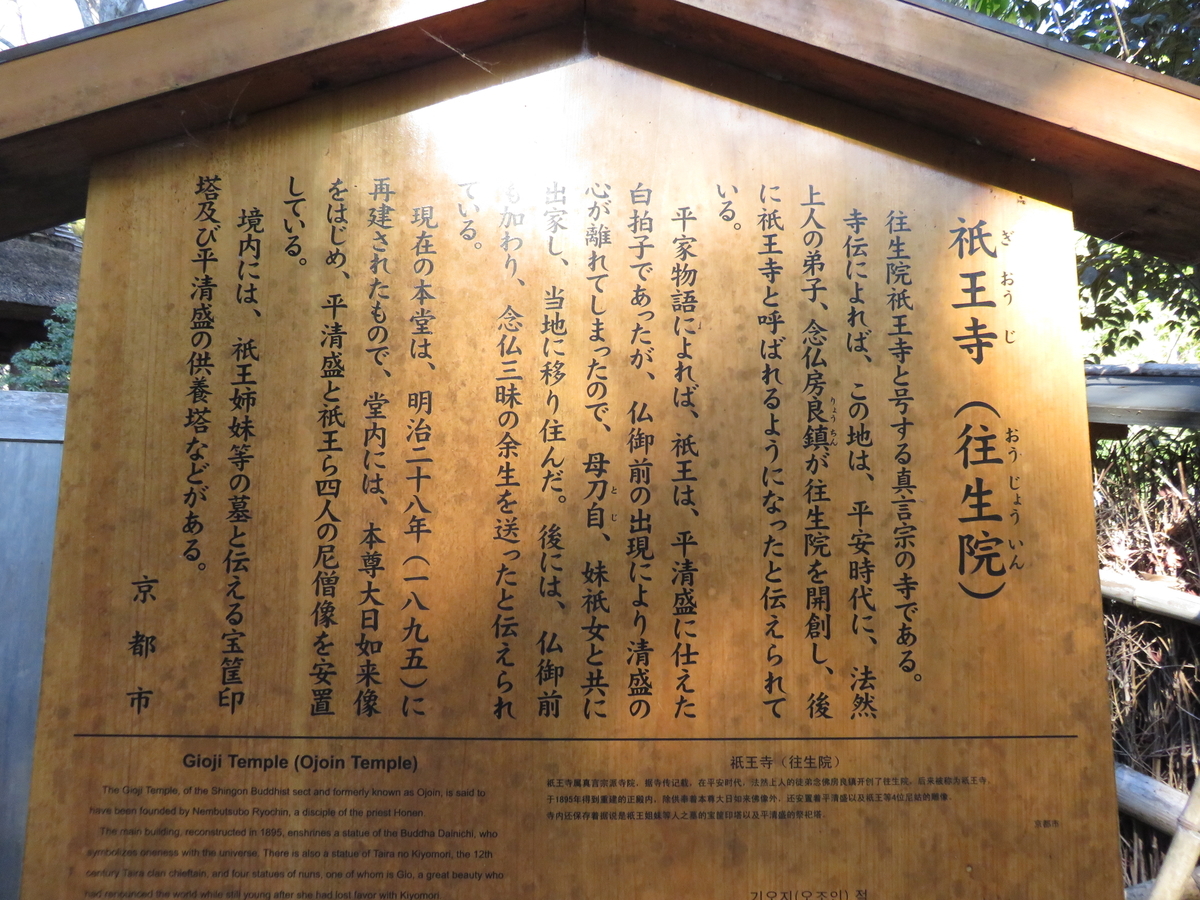 祇王寺（往生院）
ぎおうじ
おうじょういん
往生院祇王寺と号する真言宗の寺である。
寺伝によれば、この地は、平安時代に、法然
上人の弟子、念仏房良鎮が往生院を開創し、後
りょうちん
に祇王寺と呼ばれるようになったと伝えられて
いる。
平家物語によれば、祇王は、平清盛に仕えた
白拍子であったが、仏御前の出現により清盛の
心が離れてしまったので、母刀自、妹祇女と共に
とじ
出家し、当地に移り住んだ。後には、仏御前
も加わり、念仏三昧の余生を送ったと伝えられ
ている。
現在の本堂は、明治二十八年（一八九五）に
再建されたもので、堂内には、本尊大日如来像
をはじめ、平清盛と祇王ら四人の尼僧像を安置
している。
境内には、祇王姉妹等の墓と伝える宝筐印
塔及び平清盛の供養塔などがある。
京都市
Gioji Temple (Ojoin Temple)
The Gioji Temple, of the Shingon Buddhist sect and formerly known as Ojoin, is said to
have been founded by Nembutsubo Ryochin, a disciple of the priest Honen.
The main building, reconstructed in 1895, enshrines a statue of the Buddha Dainichi, who
symbolizes oneness with the universe. There is also a statue of Taira no Kiyomori, the 12th
century Taira clan chieftain, and four statues of nuns, one of whom is Gio, a great beauty who
had renounced the world while still young after she had lost favor with Kiyomori.
祇王寺（往生院）
祇王寺属真言宗派寺院，据寺传记载，在平安时代，法然上人的徒弟念佛房良镇开创了往生院，后来被称为祇王寺。
于1895年得到重建的正殿内，除供奉着本尊大日如来佛像外，还安置着平清盛以及祇王等4位尼姑的雕像。
寺内还保存着据说是祇王姐妹等人之墓的宝箧印塔以及平清盛的祭祀塔。
京都市
기오지(오조인) 절